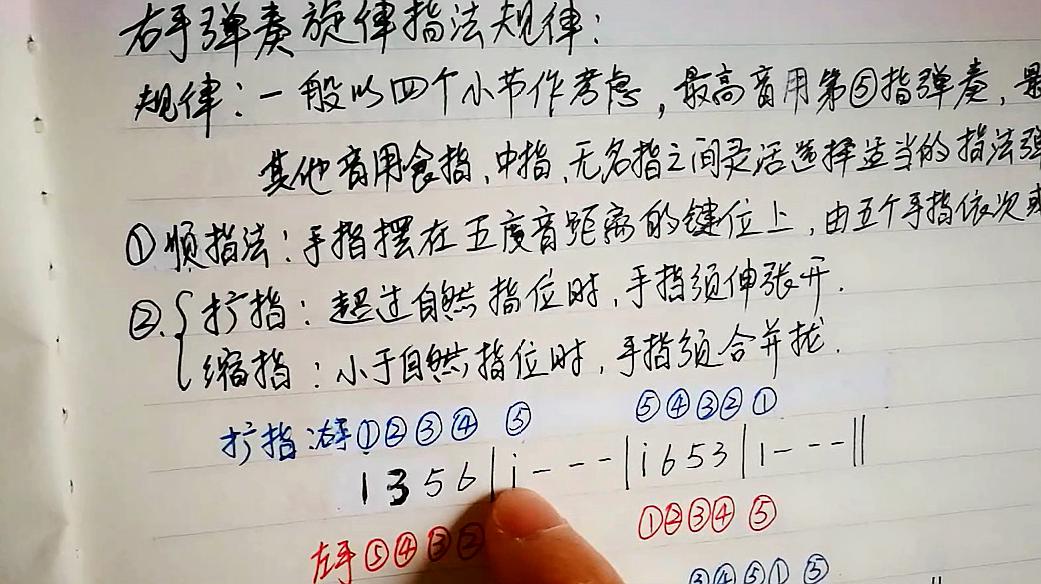 右手弹奏旋律指法规律:
规律:一般以四个小节作考虑,最高音用第⑤指弹奏,最
其他音用食指、中指、无名指之间灵活选择适当的指法弹
①顺指法:手指摆在五度音距离的键位上,由五个手指依次或
②{扩指:超过自然指位时,手指须伸张开.
缩指:小于自然指位时,手指须合并拢.
扩指:右手①②③④ ⑤ ⑤④③② ①
1 3 5 6 | i - - - | i 6 5 3 | 1 - - - ||
左手⑤④③② ①②③④ ⑤
③④⑤① ⑤